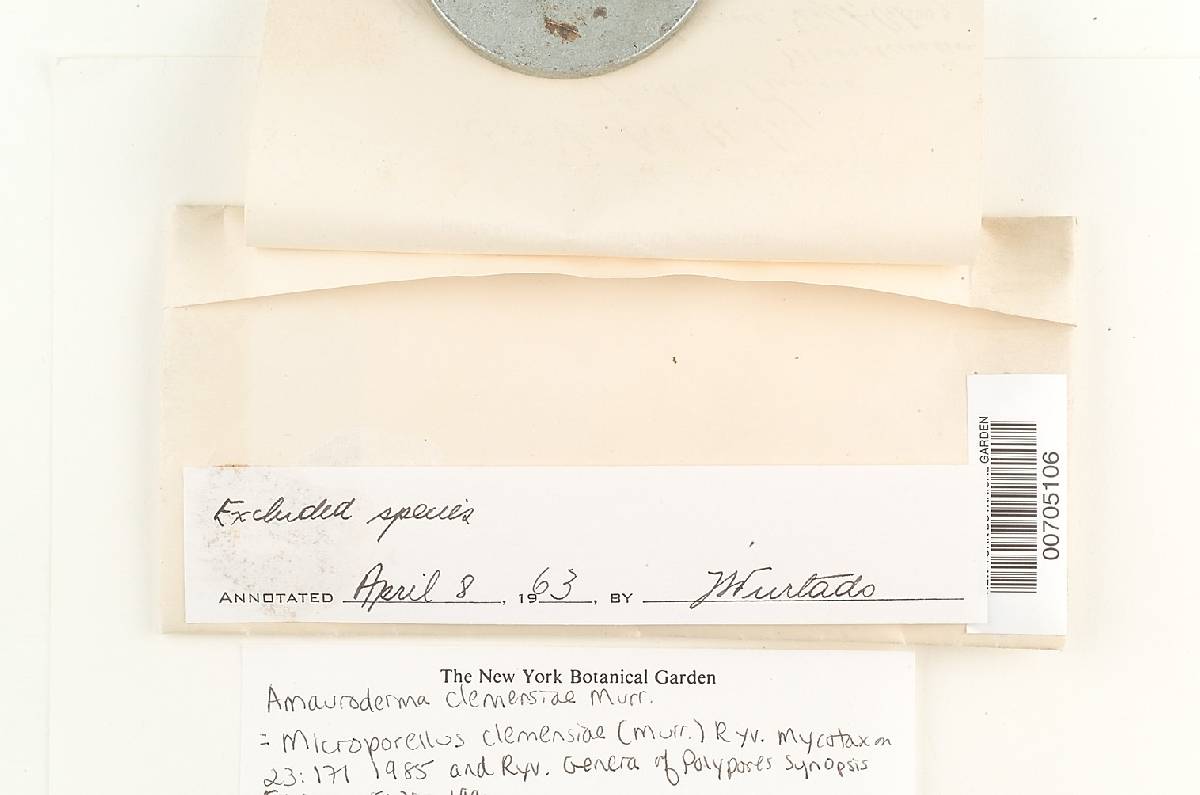 Excluded species
ANNOTATED April 8, 1963, BY JFurtado
GARDEN
00705106
The New York Botanical Garden
Amauroderma clemensiae Murr.
= Microporellus clemensiae (Murr.) Ryv. Mycotaxon
23:171 1985 and Ryv. Genera of Polypores Synopsis